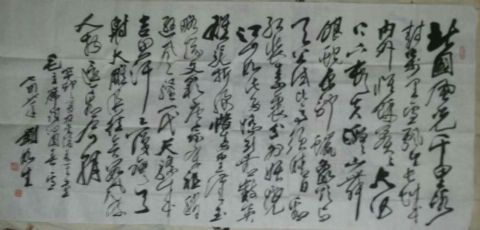 北國風光千里冰
封萬里雪飄望長城
內外惟餘莽莽大河
上下頓失滔滔山舞
銀蛇原馳蠟象欲与
天公試比高須晴日看
紅裝素裹分外妖嬈
江山如此多嬌引無數英
雄競折腰惜秦皇漢武
略輸文采唐宗宋祖稍
遜風騷一代天驕成
吉思汗只識彎弓
射大雕俱往矣數風流
人物還看今朝
辛卯
毛主席詞沁園春雪